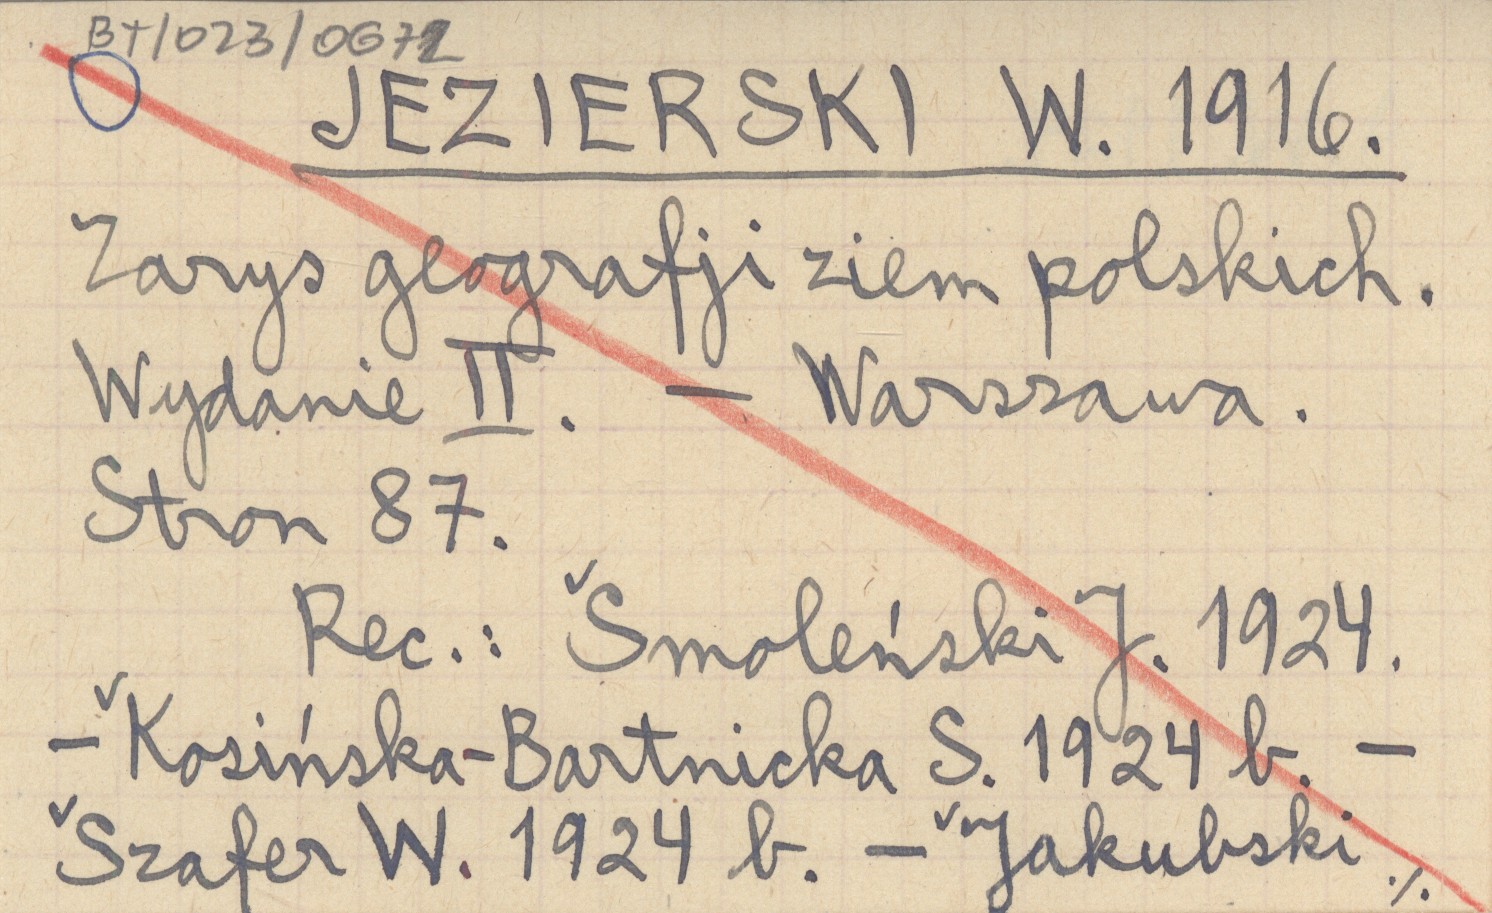 BT/023/0671
JEZIERSKI W. 1916.
Zarys geografji ziem polskich.
Wydanie II. — Warszawa.
Stron 87.
Rec.: Smoleński J. 1924.
— Kosińska-Bartnicka S. 1924 b. —
Szafer W. 1924 b. — Jakubski
./.